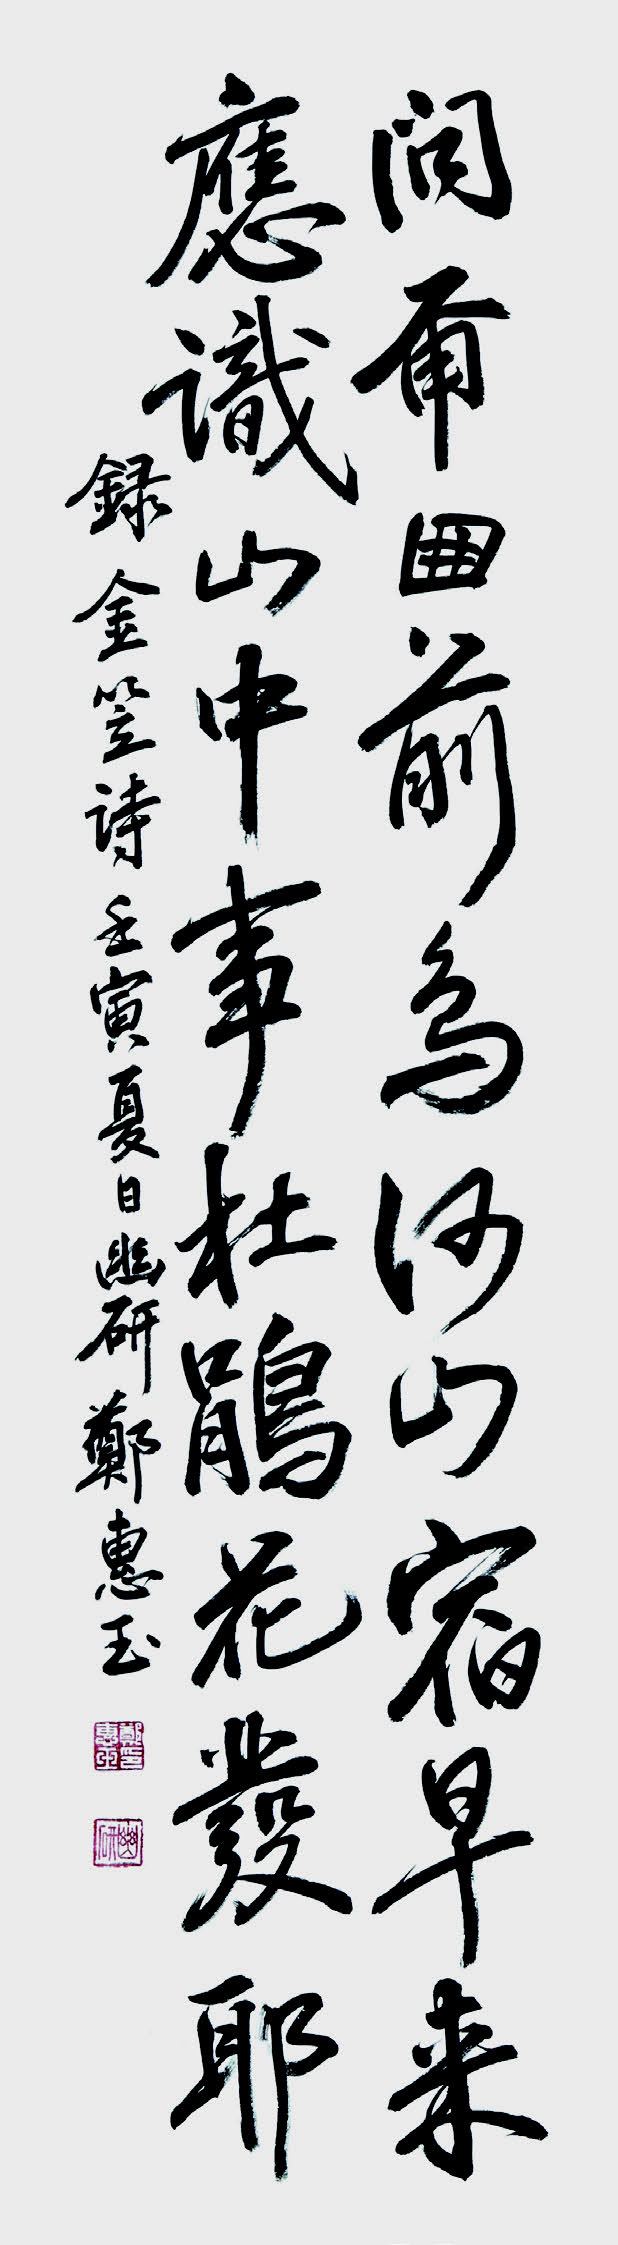 問爾窓前鳥何山宿早来
應識山中事杜鵑花發耶
録金笠詩壬寅夏日幽研鄭惠玉
鄭惠玉印
幽研